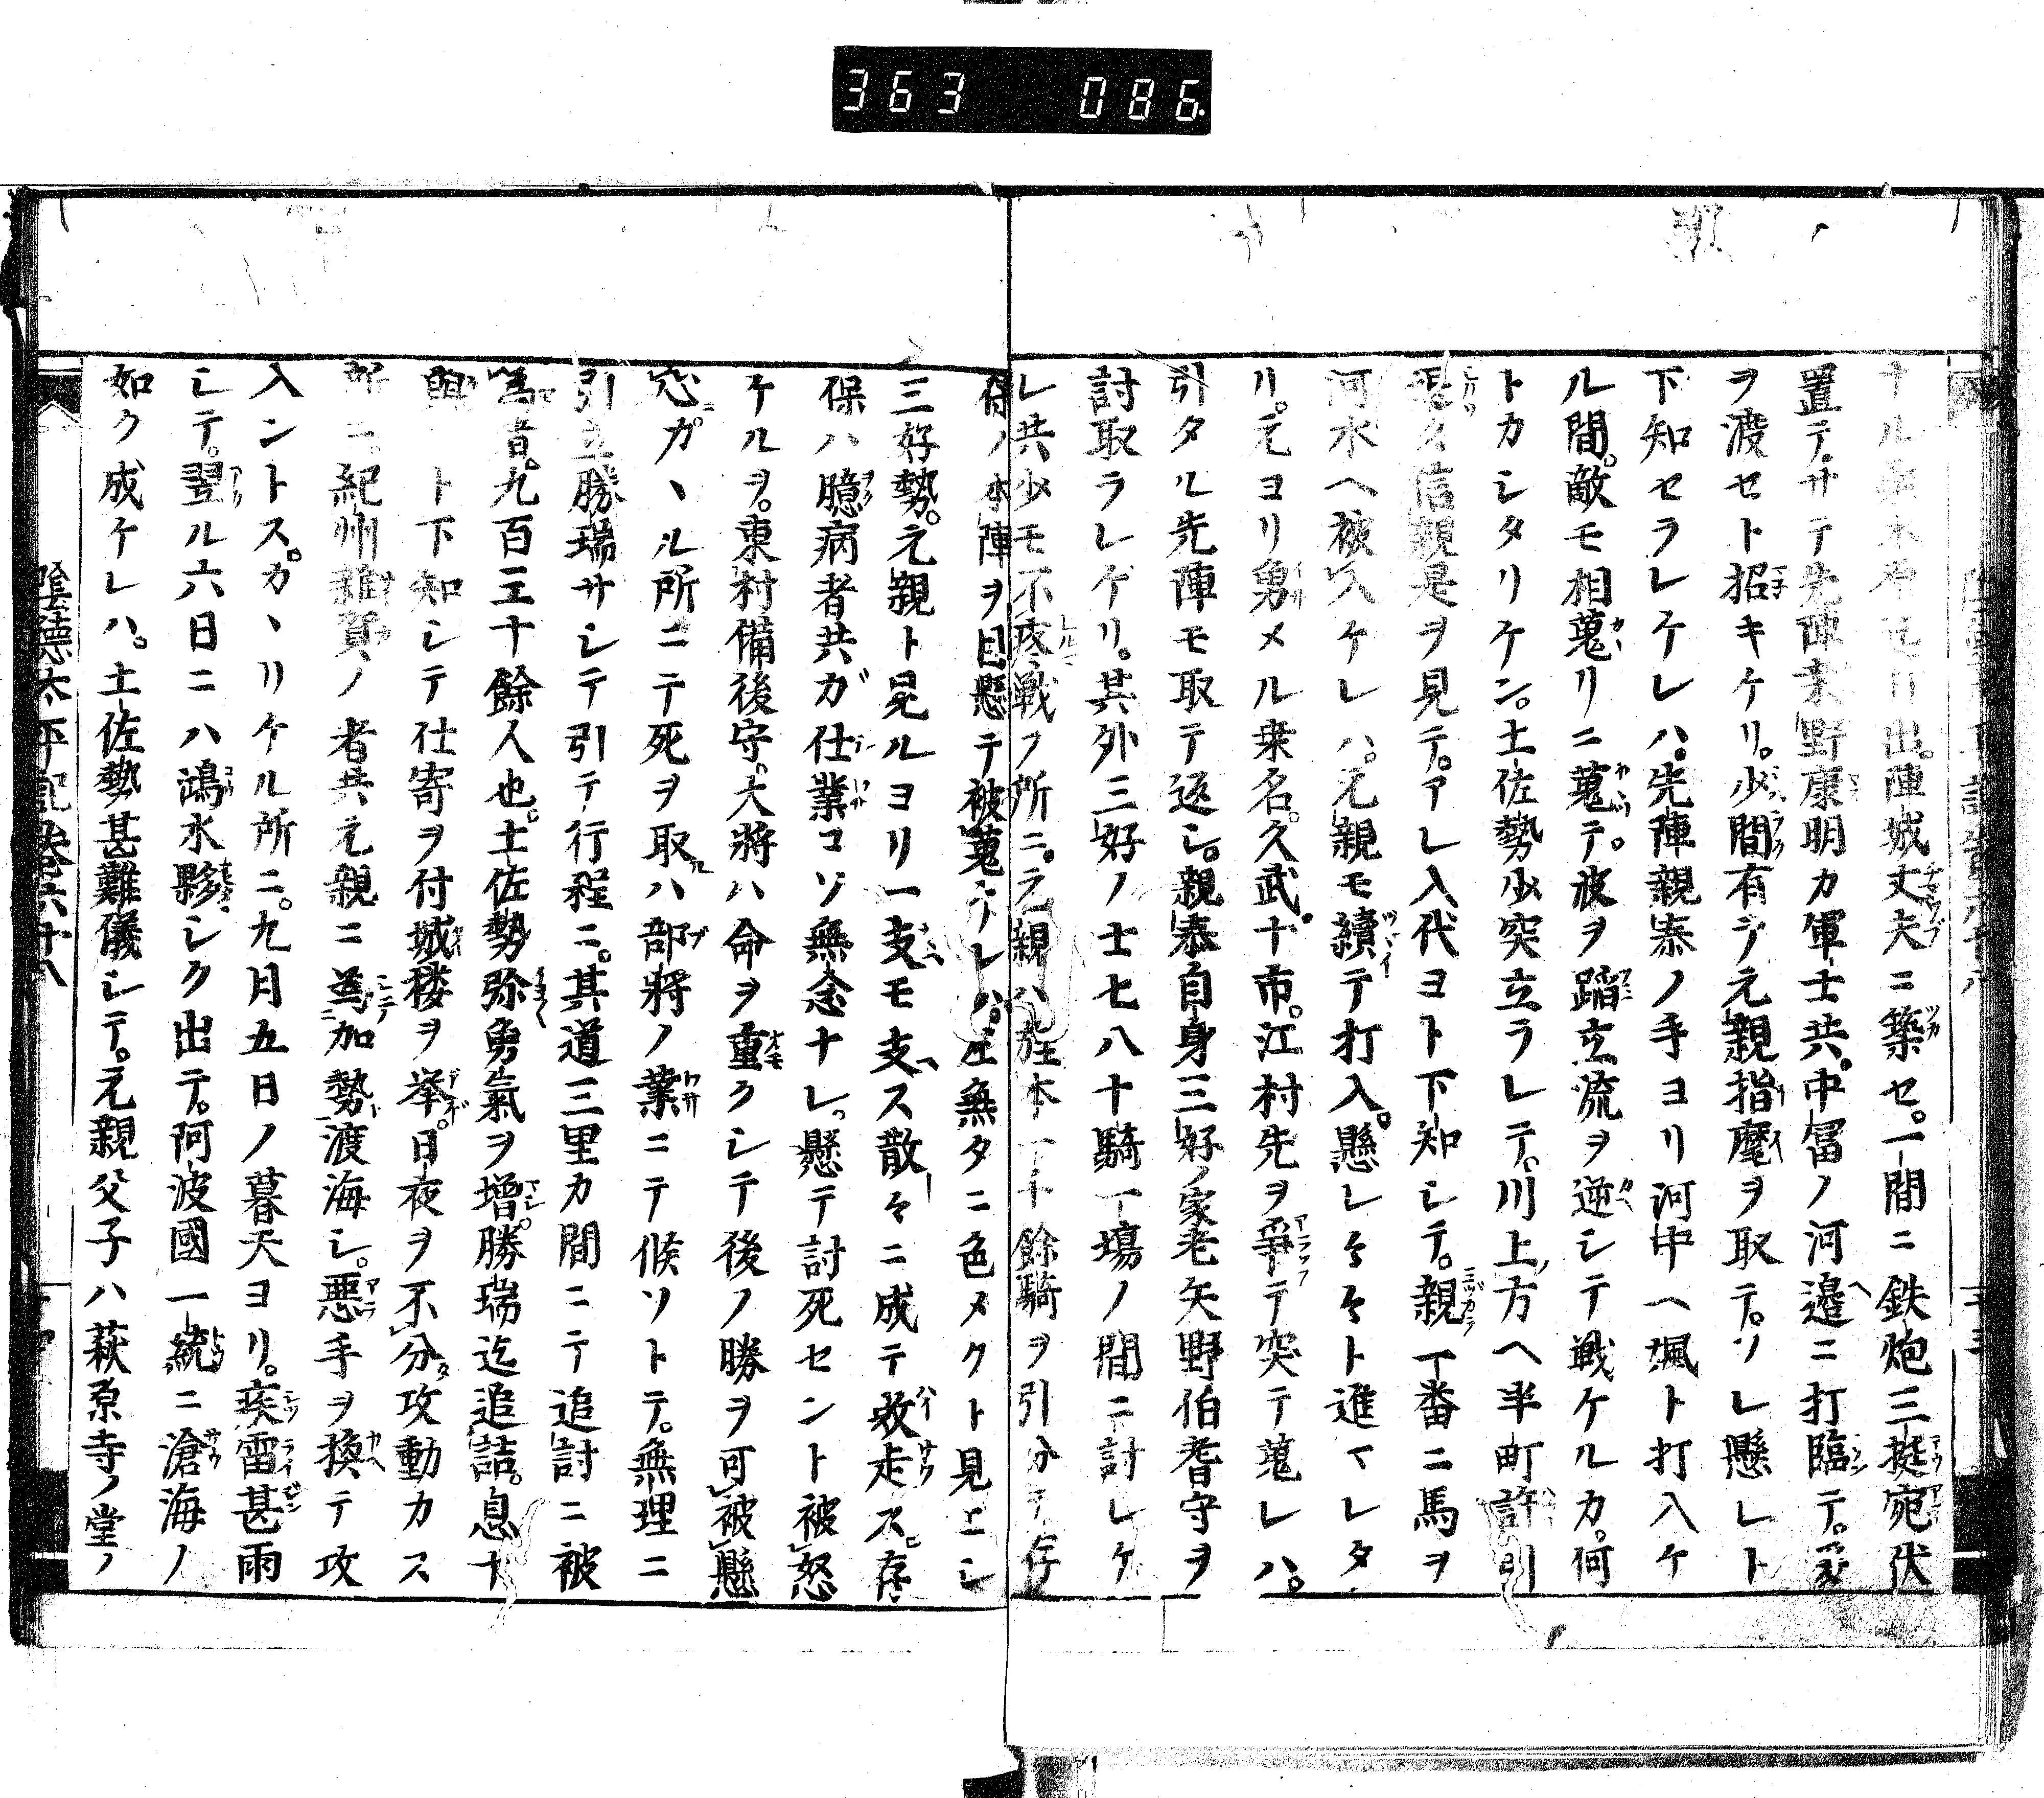 363 086
出。陣城丈夫ニ築セ。一間ニ鉄炮三挺宛伏
置テ。サテ先陣桑野康明カ軍士共。中冨ノ河邉ニ打臨テ。
ヲ渡セト招キケリ。少間有テ元親指麾ヲ取テ。ソレ懸レト
下知セラレケレハ。先陣親泰ノ手ヨリ河中ヘ颯ト打入ケ
ル間。敵モ相蒐リニ蒐テ。波ヲ蹈立流ヲ逆シテ戦ケルカ。何
トカシタリケン。土佐勢少突立ラレテ。川上ノ方ヘ半町許引
信親是ヲ見テ。アレ入代ヨト下知シテ。親一番ニ馬ヲ
河水ヘ被入ケレハ。元親モ續テ打入。懸レ々々ト進マレタ
リ。元ヨリ勇メル桒名。久武。十市。江村先ヲ爭テ突テ蒐レハ。
引タル先陣モ取テ返シ。親泰自身三好ノ家老矢野伯耆守ヲ
討取ラレケリ。其外三好ノ士七八十騎一塲ノ間ニ討レケ
レ共少モ不戦フ所ニ。元親ハ旌本一千餘騎ヲ引分テ。存
保ノ本陣ヲ目懸テ被蒐ケレハ。左無タニ色メクト見エシ
三好勢。元親ト見ルヨリ一支モ支ス散々ニ成テ敗走ス。存
保ハ臆病者共ガ仕業コソ無念ナレ。懸テ討死セント被怒
ケルヲ。東村備後守。大將ハ命ヲ重クシテ後ノ勝ヲ可被懸
心ガヽル所ニテ死ヲ取ハ部將ノ業ニテ候ソトテ。無理ニ
引立勝瑞サシテ引テ行程ニ。其道三里カ間ニテ追討ニ被
為者。九百三十餘人也。土佐勢弥勇氣ヲ増。勝瑞迄追詰。息ナ
ト下知シテ仕寄ヲ付城楼ヲ挙。日夜ヲ不分攻動カス
所ニ。紀州雜賀ノ者共元親ニ為加勢渡海シ。悪手ヲ換テ攻
入ントス。カヽリケル所ニ。九月五日ノ暮天ヨリ。疾雷甚雨
シテ。翌ル六日ニハ鴻水夥シク出テ。阿波國一統ニ滄海ノ
如ク成ケレハ。土佐勢甚難儀シテ。元親父子ハ萩原寺ノ堂ノ
陰德太平記卷六十八